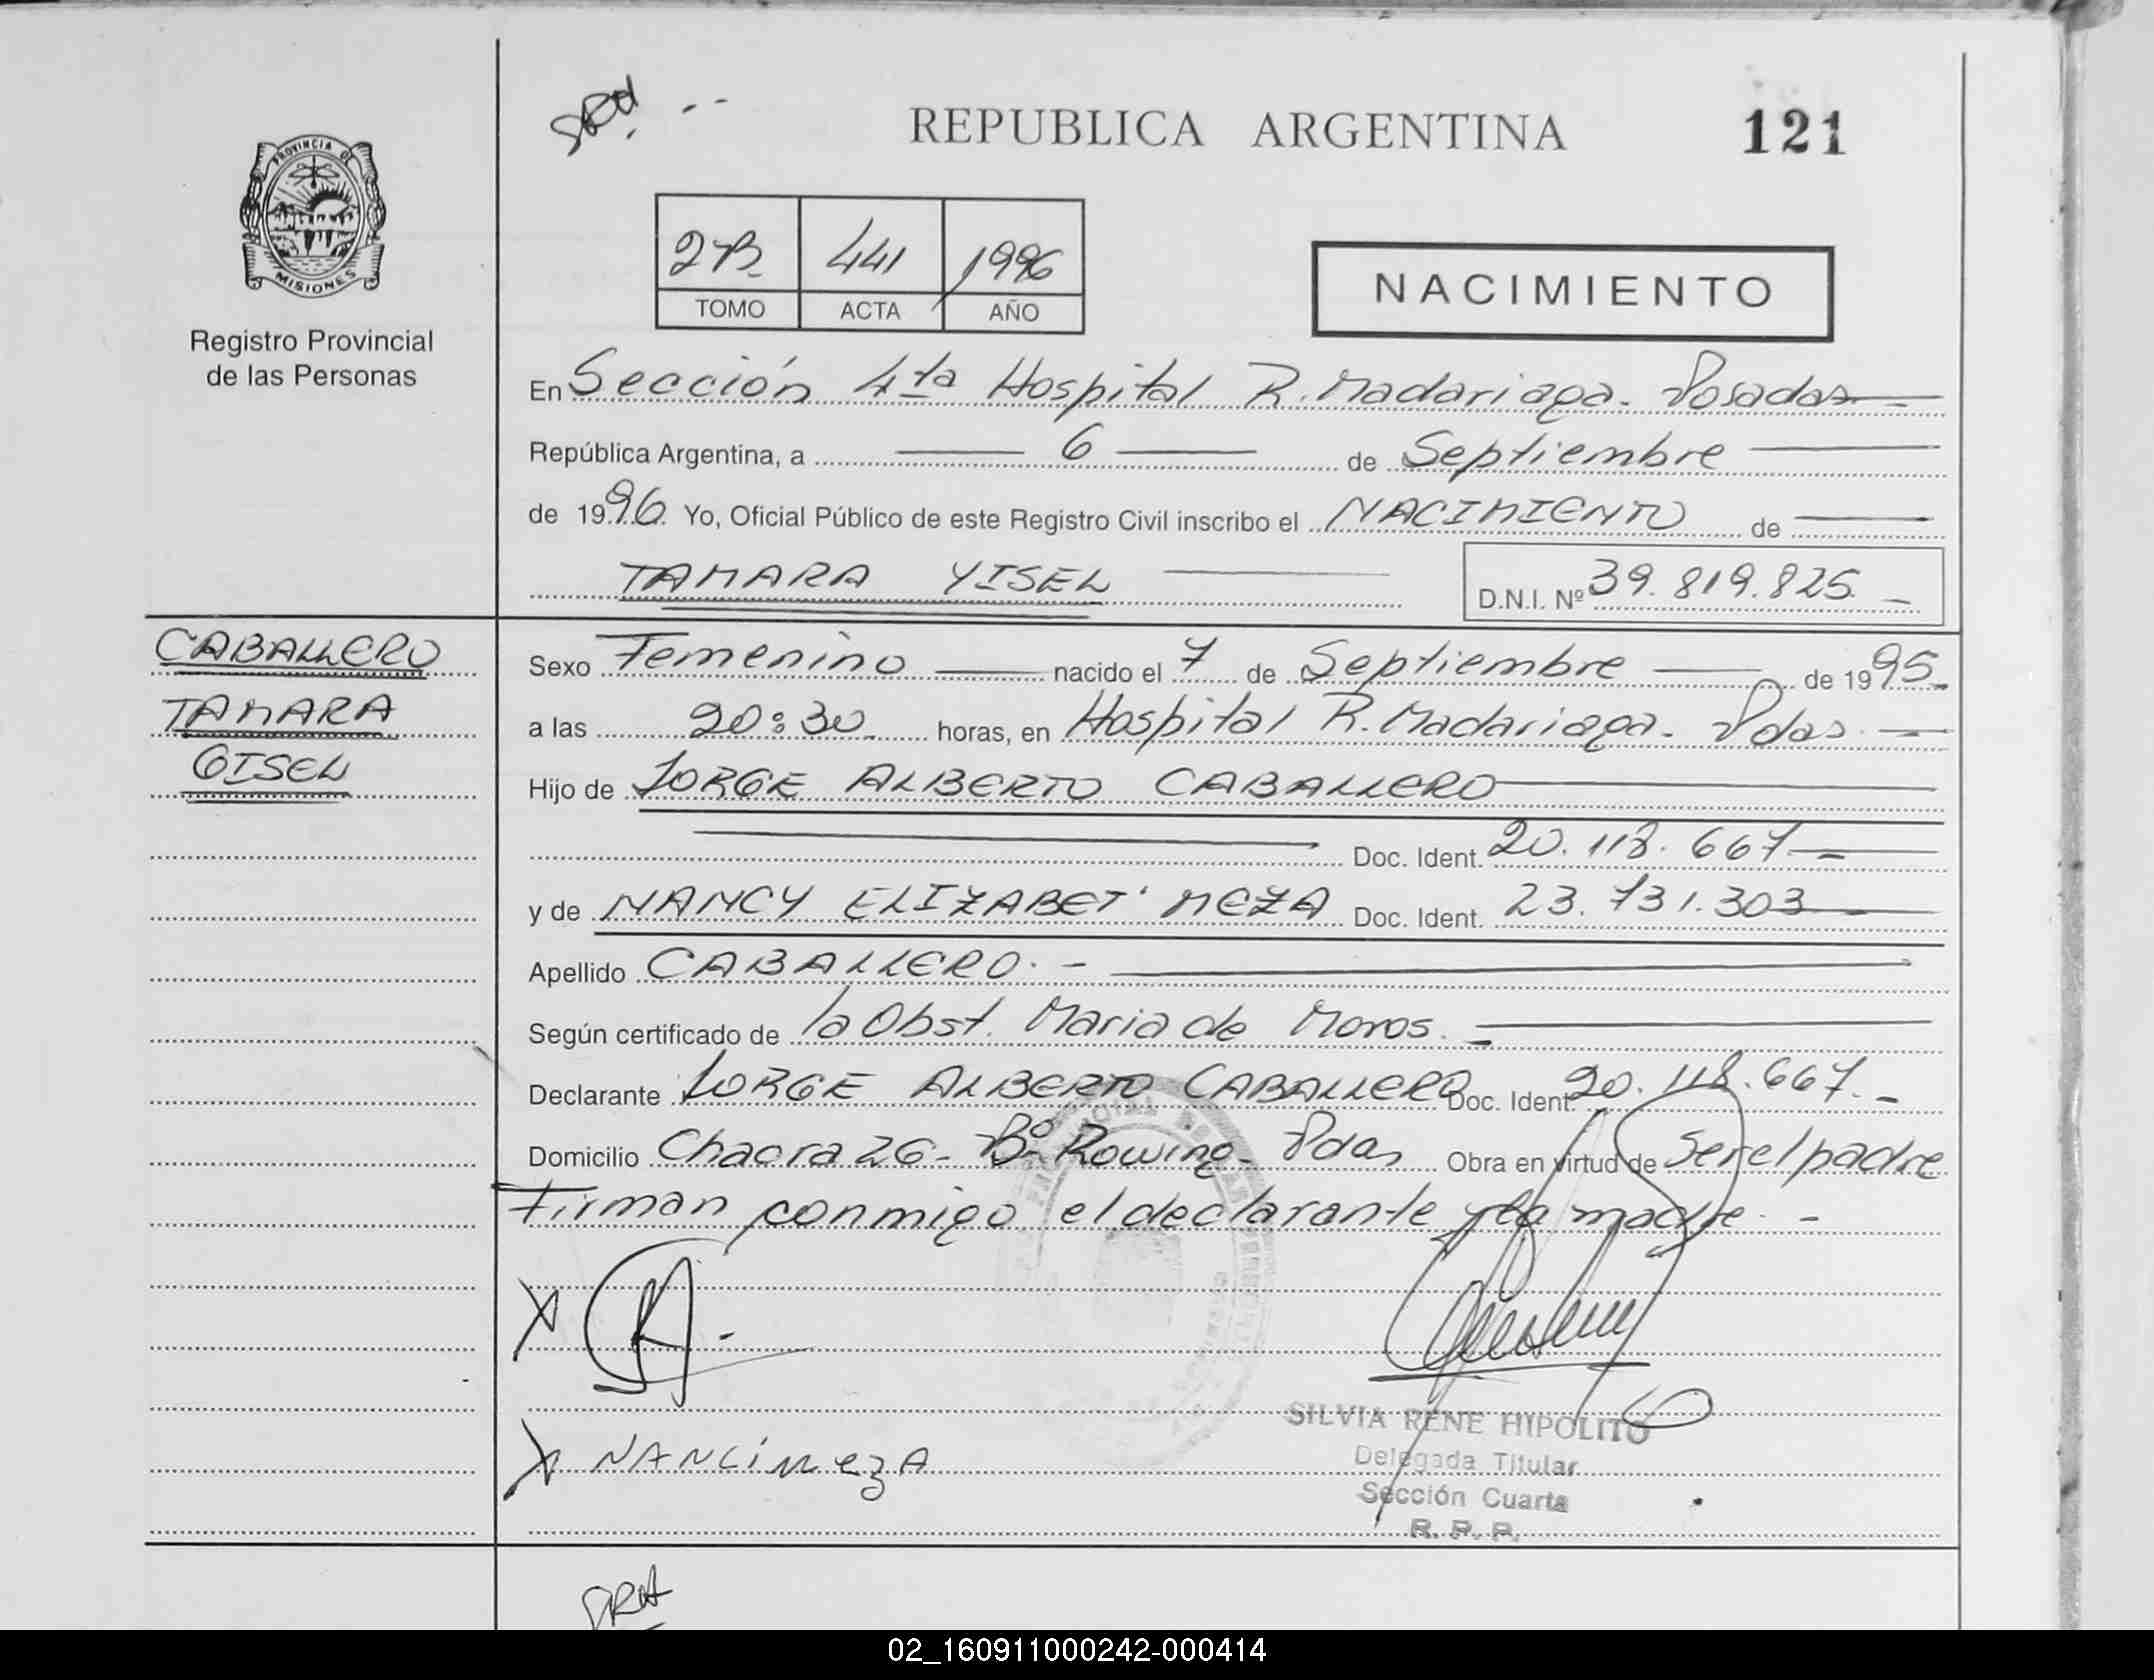 REPUBLICA ARGENTINA
121
PROVINCIA DE
MISIONES
Registro Provincial
de las Personas
2B 441 1996
TOMO ACTA AÑO
NACIMIENTO
En Sección 4ta Hospital R. Madariaga. Posadas
República Argentina, a 6 de Septiembre
de 1996 Yo, Oficial Público de este Registro Civil inscribo el NACIMIENTO de
TAMARA YISEL
D.N.I. Nº 39.819.825.
CABALLERO
TAMARA
GISEL
Sexo Femenino nacido el 7 de Septiembre de 1995
a las 20:30 horas, en Hospital R. Madariaga. Pdas.
Hijo de JORGE ALBERTO CABALLERO
Doc. Ident. 20.118.667
y de NANCY ELIZABET' MEZA Doc. Ident. 23.731.303
Apellido CABALLERO. -
Según certificado de la Obst. Maria de Moros.
Declarante JORGE ALBERTO CABALLERO Doc. Ident. 20.118.667. -
Domicilio Chacra 26 - Bº Rowing - Pdas Obra en virtud de Ser el padre
Firman conmigo el declarante y la madre. -
X
X NANCi MezA
SILVIA RENE HIPOLITO
Delegada Titular
Sección Cuarta
R. P. P.
02_160911000242-000414